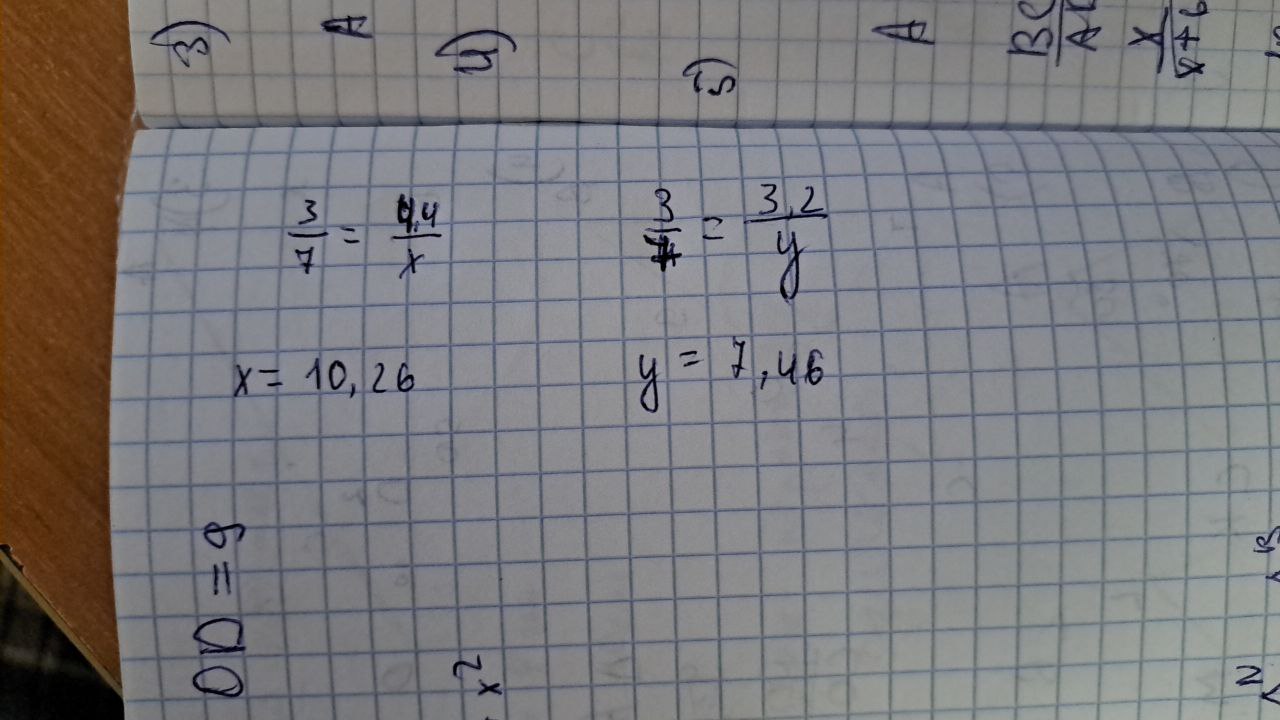 3) A 4) 5) A
3/7 = 4,4/x
3/7 = 3,2/y
x = 10,26
y = 7,46
OD = 9
x²